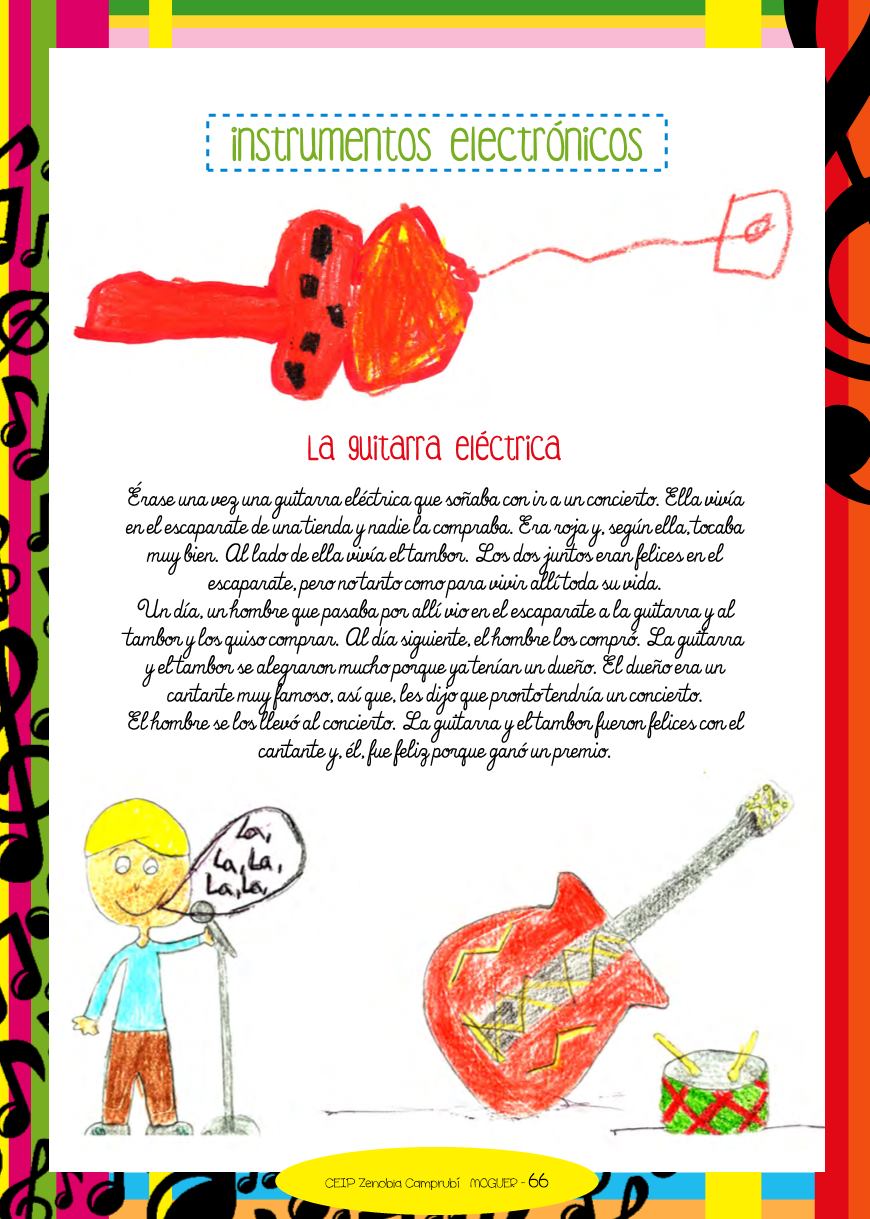 instrumentos electrónicos
La guitarra eléctrica
Érase una vez una guitarra eléctrica que soñaba con ir a un concierto. Ella vivía
en el escaparate de una tienda y nadie la compraba. Era roja y, según ella, tocaba
muy bien. Al lado de ella vivía el tambor. Los dos juntos eran felices en el
escaparate, pero no tanto como para vivir allí toda su vida.
Un día, un hombre que pasaba por allí vio en el escaparate a la guitarra y al
tambor y los quiso comprar. Al día siguiente, el hombre los compró. La guitarra
y el tambor se alegraron mucho porque ya tenían un dueño. El dueño era un
cantante muy famoso, así que, les dijo que pronto tendría un concierto.
El hombre se los llevó al concierto. La guitarra y el tambor fueron felices con el
cantante y, él, fue feliz porque ganó un premio.
La,
La, La,
La, La,
CEIP Zenobia Camprubí MOGUER - 66